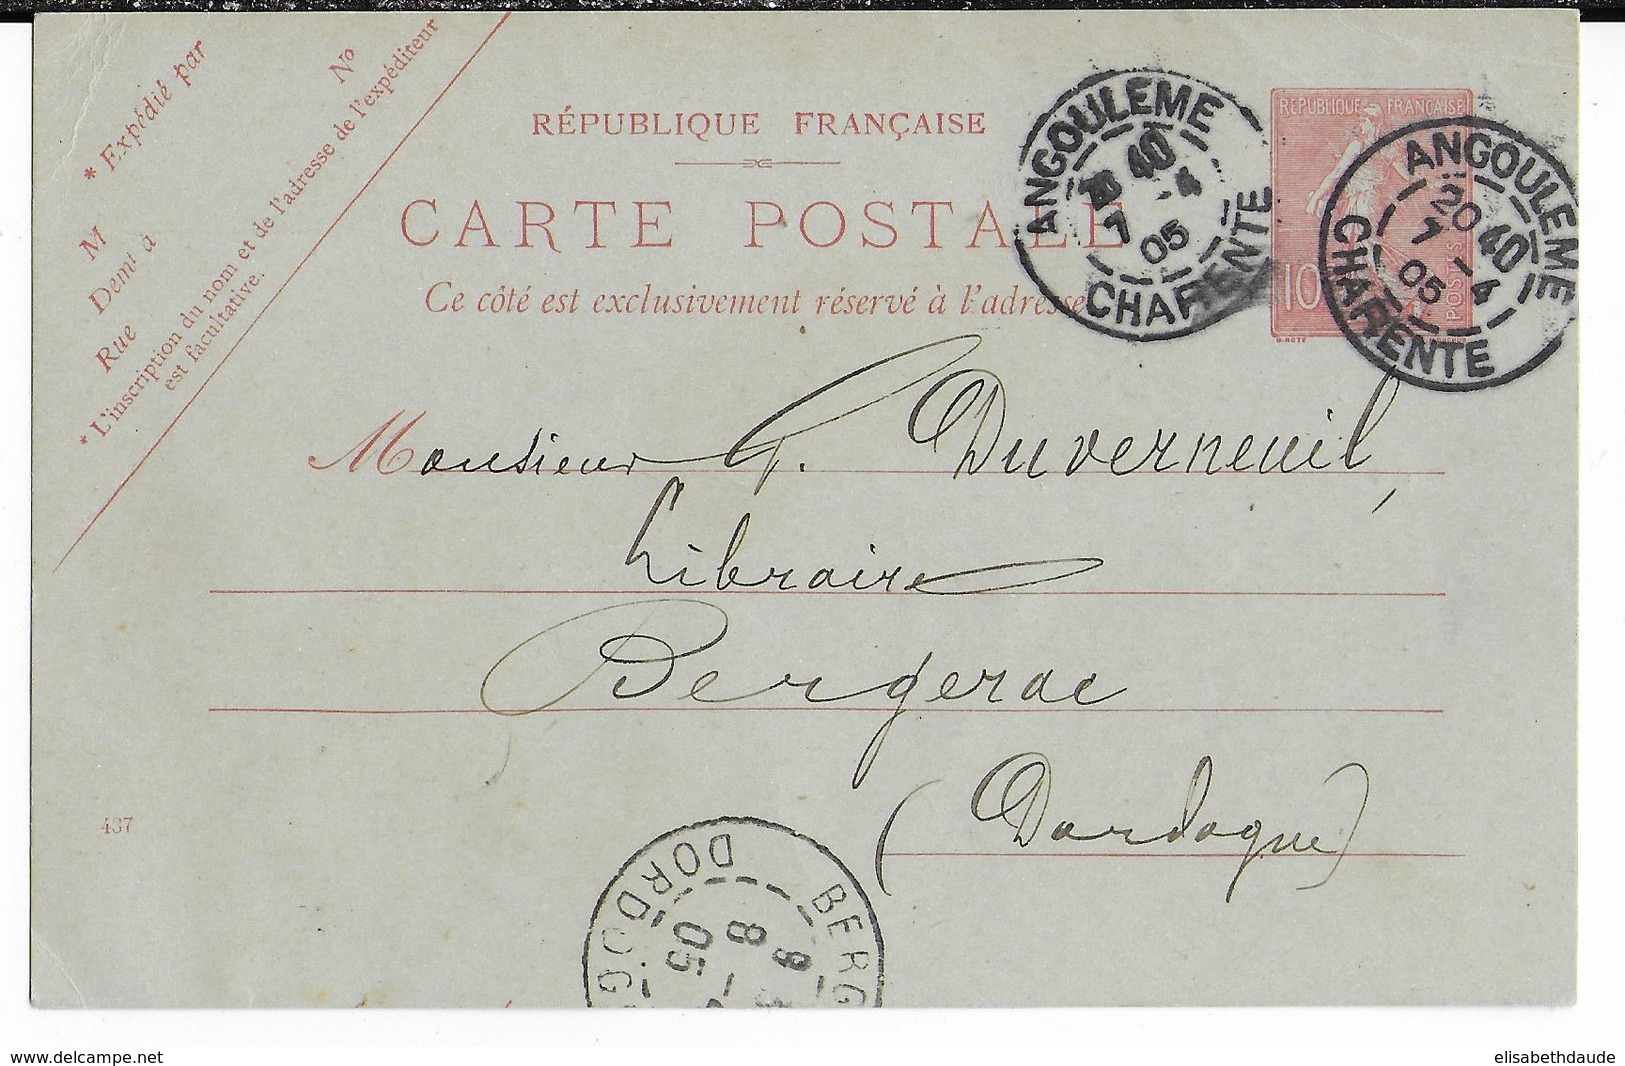 * Expédié par
M
Demt à
Rue
No
* L'inscription du nom et de l'adresse de l'expéditeur
est facultative.
RÉPUBLIQUE FRANÇAISE
CARTE POSTALE
Ce côté est exclusivement réservé à l'adresse
ANGOULEME
40
7 -4
05
CHARENTE
REPUBLIQUE FRANÇAISE
POSTES
10
O. ROTY
ANGOULEME
20 40
7 -4
05
CHARENTE
Monsieur G. Duverneuil,
Libraire
Bergerac
(Dordogne)
437
BERG
DORDOG
8
05
delcampe.net
elisabethdaude